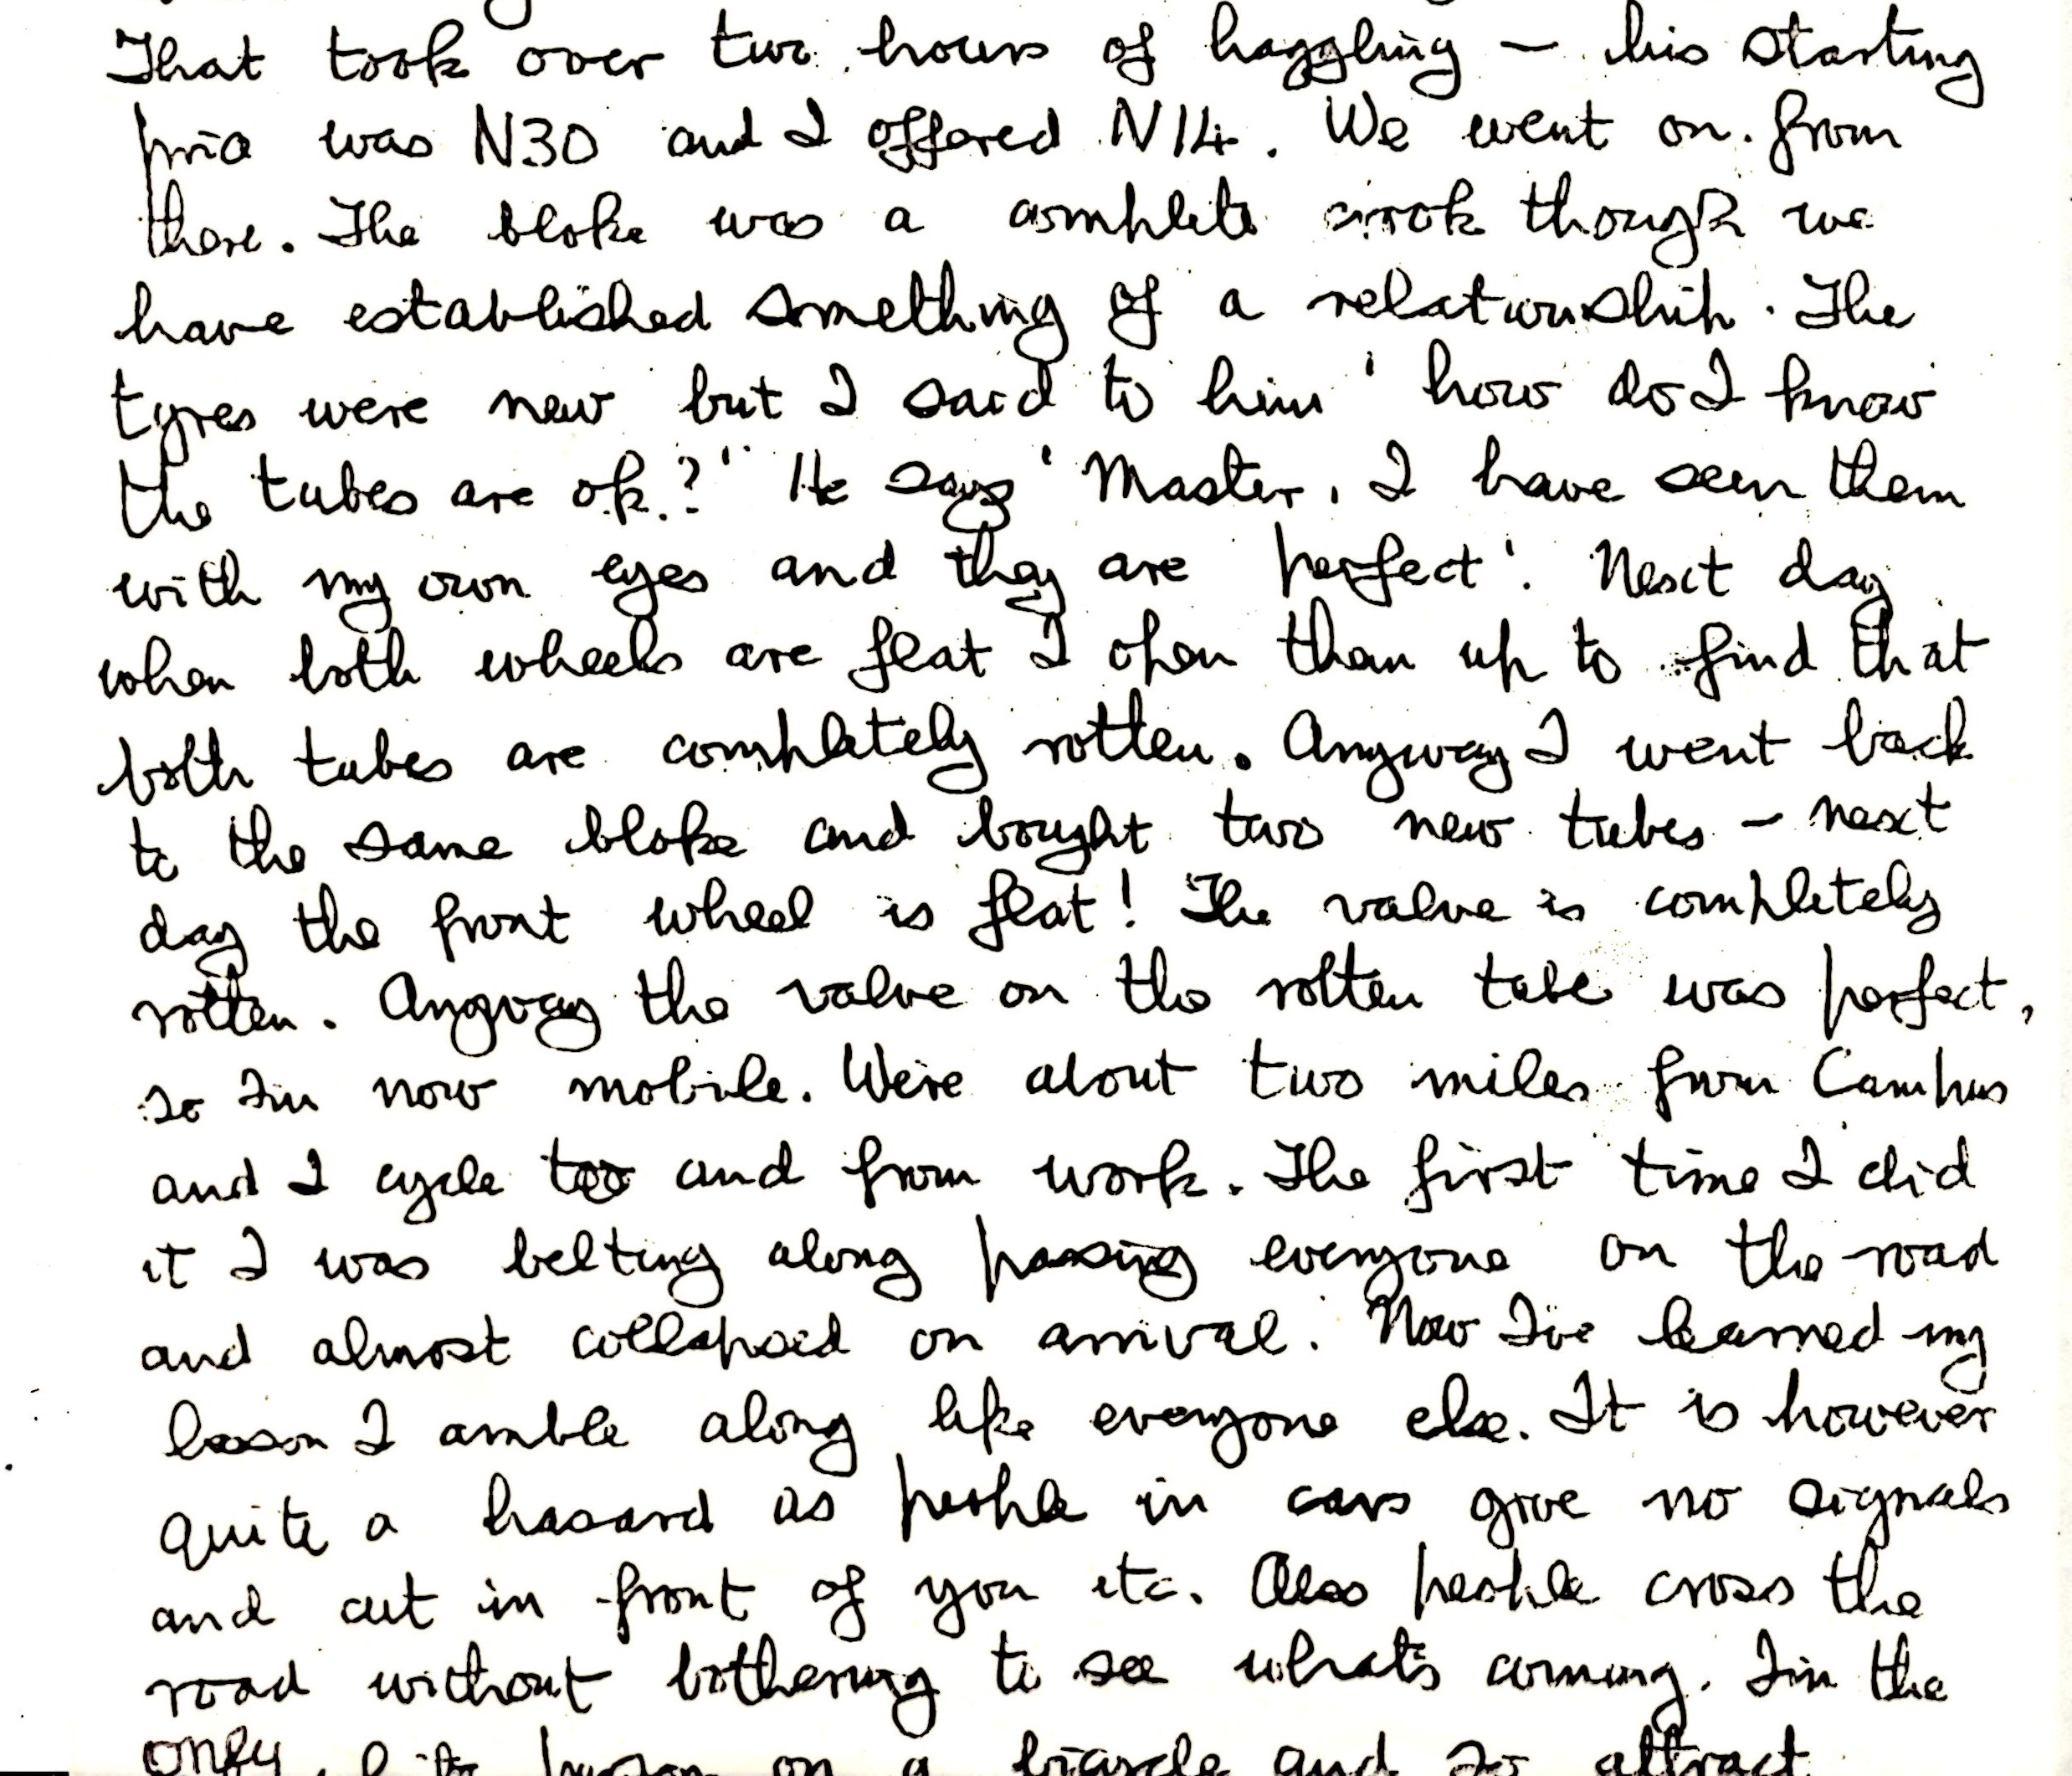 That took over two hours of haggling – his starting
price was N30 and I offered N14. We went on from
there. The bloke was a complete crook though we
have established something of a relationship. The
tyres were new but I said to him ' how do I know
the tubes are ok.?" He says 'Master, I have seen them
with my own eyes and they are perfect'. Next day
when both wheels are flat I open them up to find that
both tubes are completely rotten. Anyway I went back
to the same bloke and bought two new tubes – next
day the front wheel is flat! The valve is completely
rotten. Anyway the valve on the rotten tube was perfect,
so Im now mobile. We're about two miles from Campus
and I cycle too and from work. The first time I did
it I was belting along passing everyone on the road
and almost collapsed on arrival. Now I've learned my
lesson I amble along like everyone else. It is however
quite a hasard as people in cars give no signals
and cut in front of you etc. Also people cross the
road without bothering to see what's coming. Im the
only white person on a bicycle and so attract